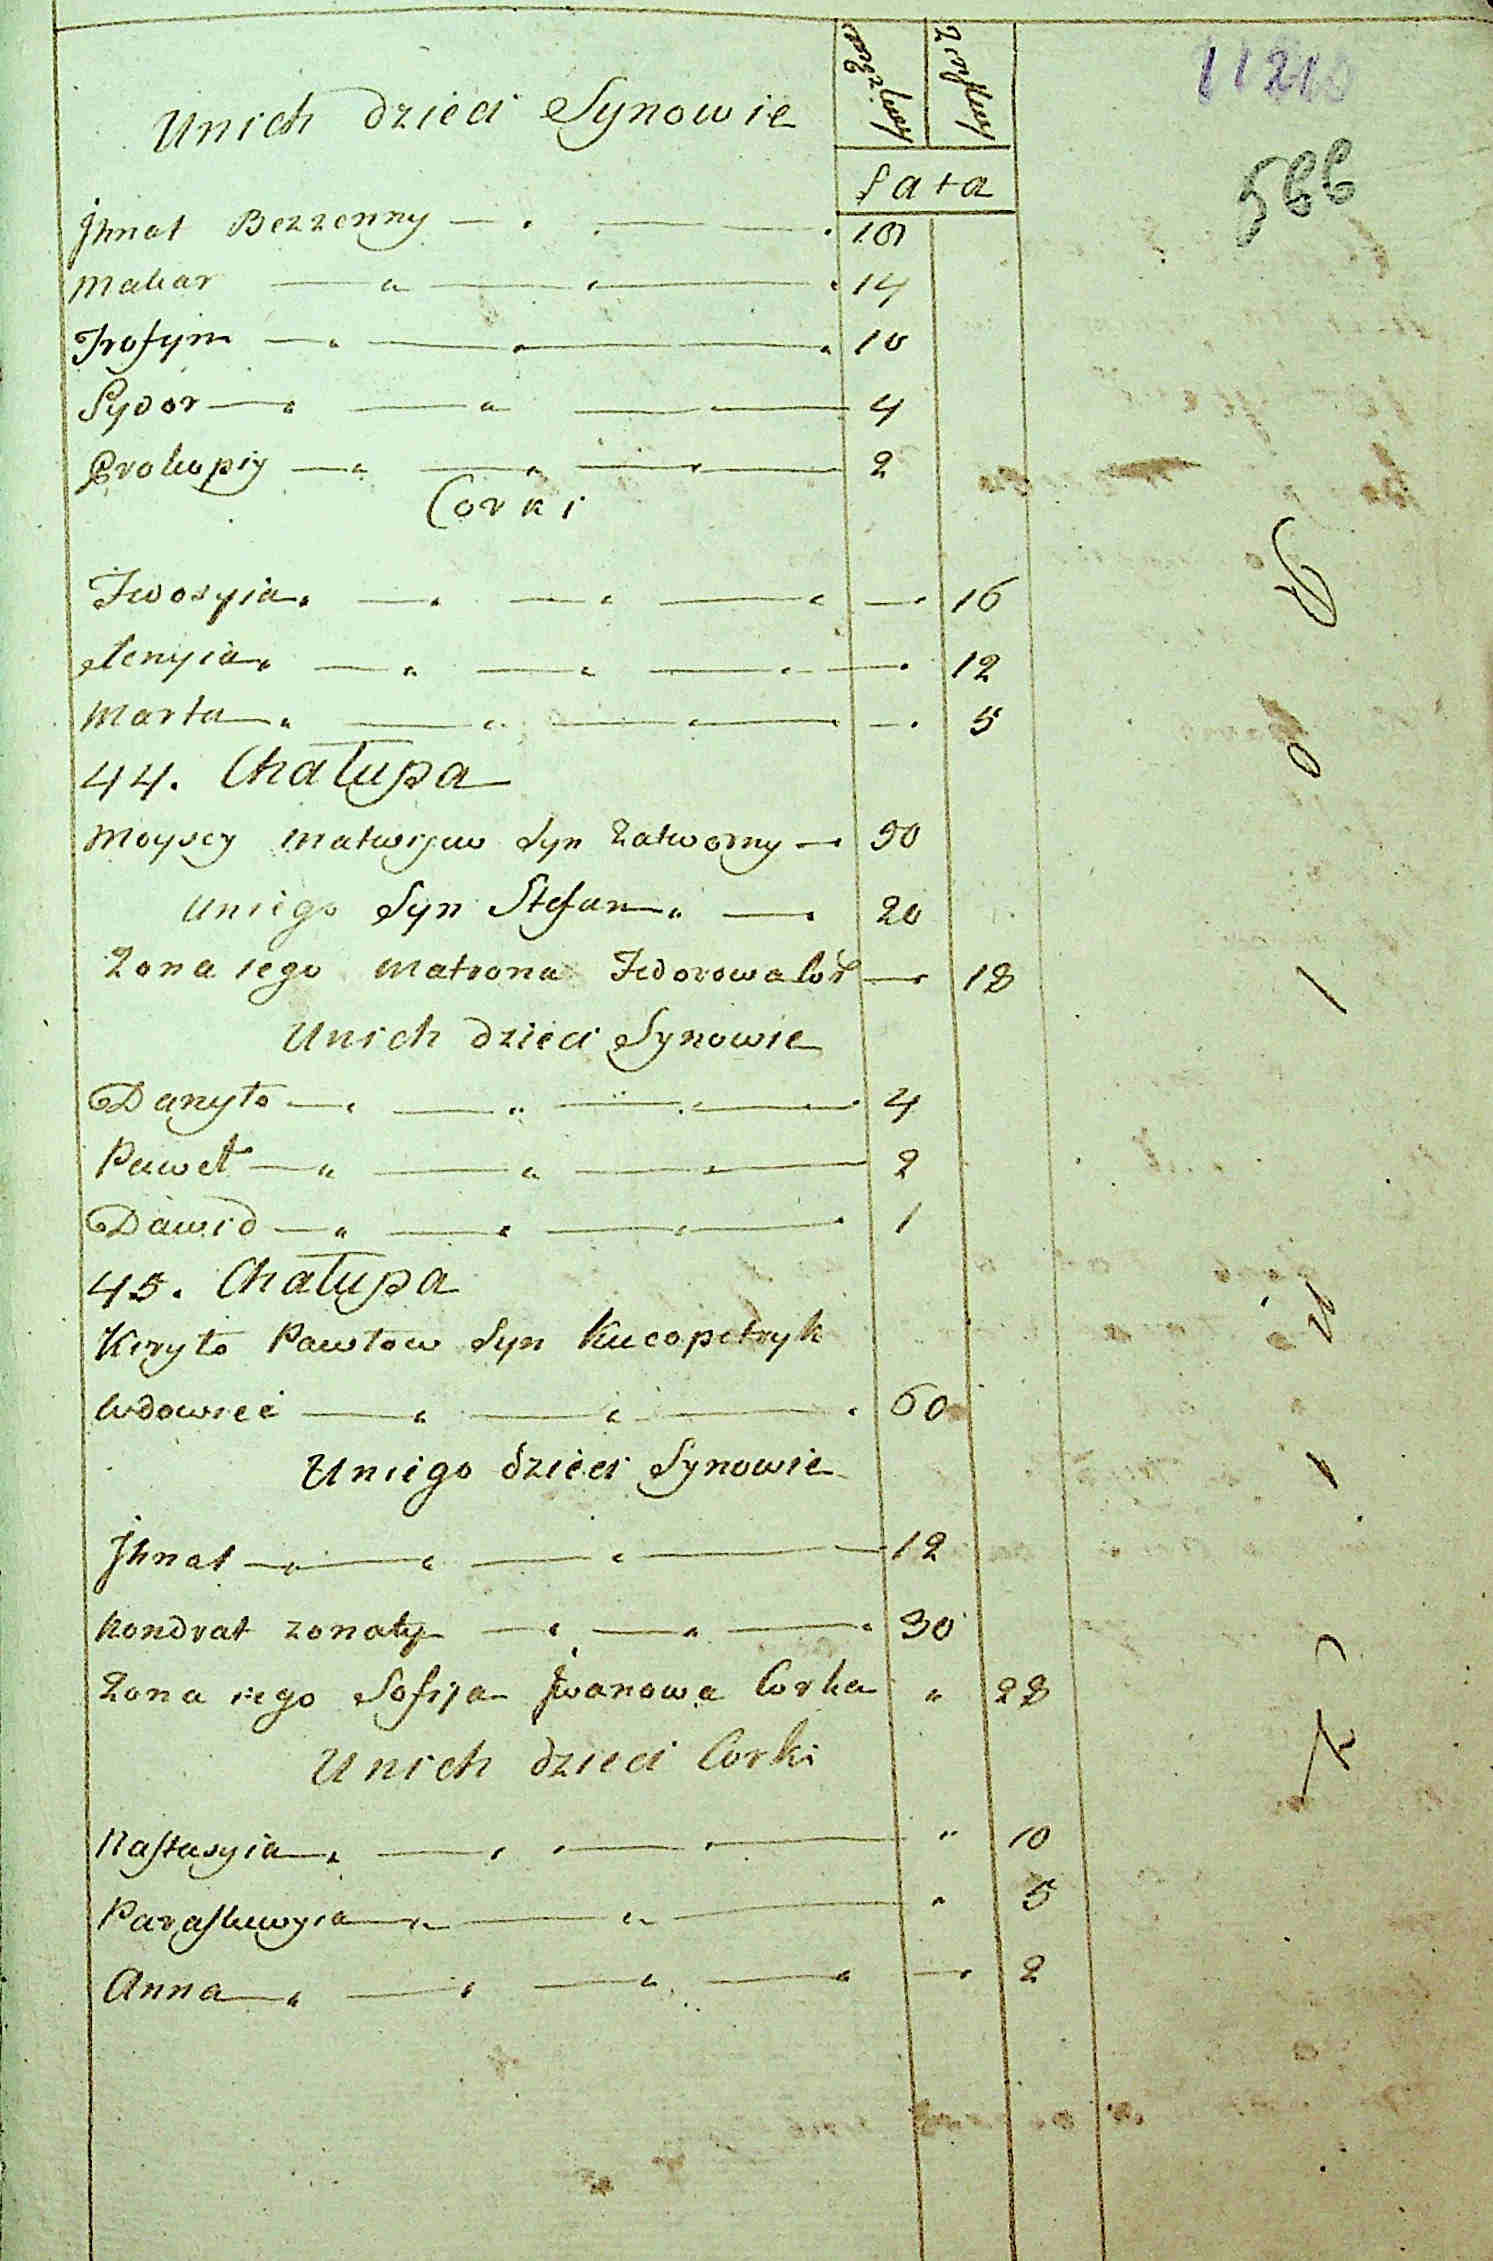 Mężcz:
Unich dzieci Synowie
lata
Jhnat Bezzenny 18
Makar 14
Trofym 10
Sydor 4
Prokopiy 2
Corki
Fwosyia 16
Xenyia 12
Marta 5
44. Chałupa
Moysey Matwijow Syn Zatworny 50
Uniego Syn Stefan 20
Zona iego Matrona Fedorowa Cor 18
Unich dzieci Synowie
Danyło 4
Paweł 2
Dawid 1
45. Chałupa
Kiryło Pawłow Syn Kucopetryk
wdowiec 60
Uniego dzieci Synowie
Jhnat 12
Kondrat zonaty 30
Zona iego Sofija Jwanowa Corka " 28
Unich dzieci Corki
Nastasyia " 10
Paraskewyia " 5
Anna 2
566